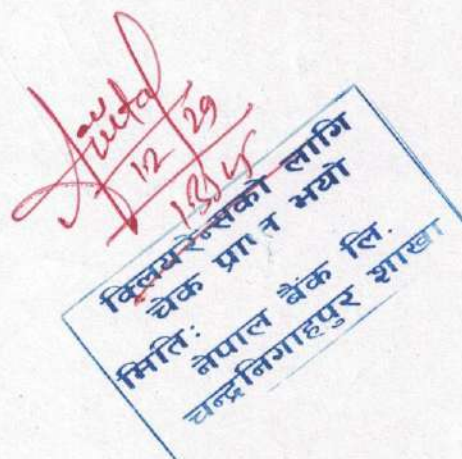 12 29
1345
क्लियरेन्सको लागि
चेक प्राप्त भयो
मिति:
नेपाल बैंक लि.
चन्द्रनिगाहपुर शाखा